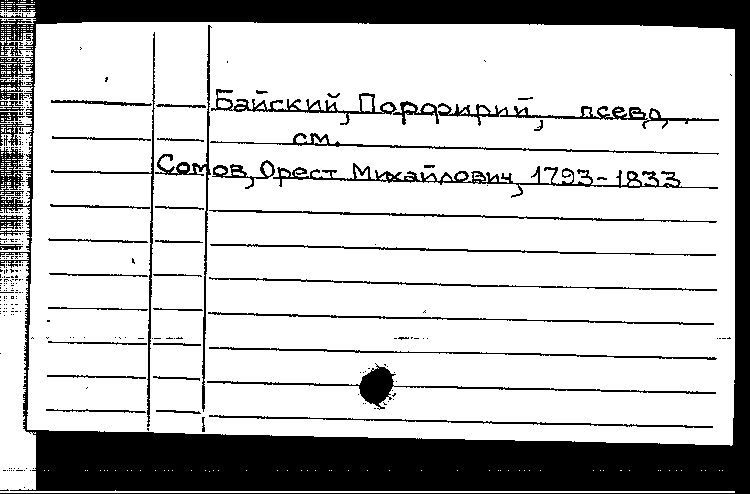 Байский, Порфирий, псевд.
см.
Сомов, Орест Михайлович, 1793-1833